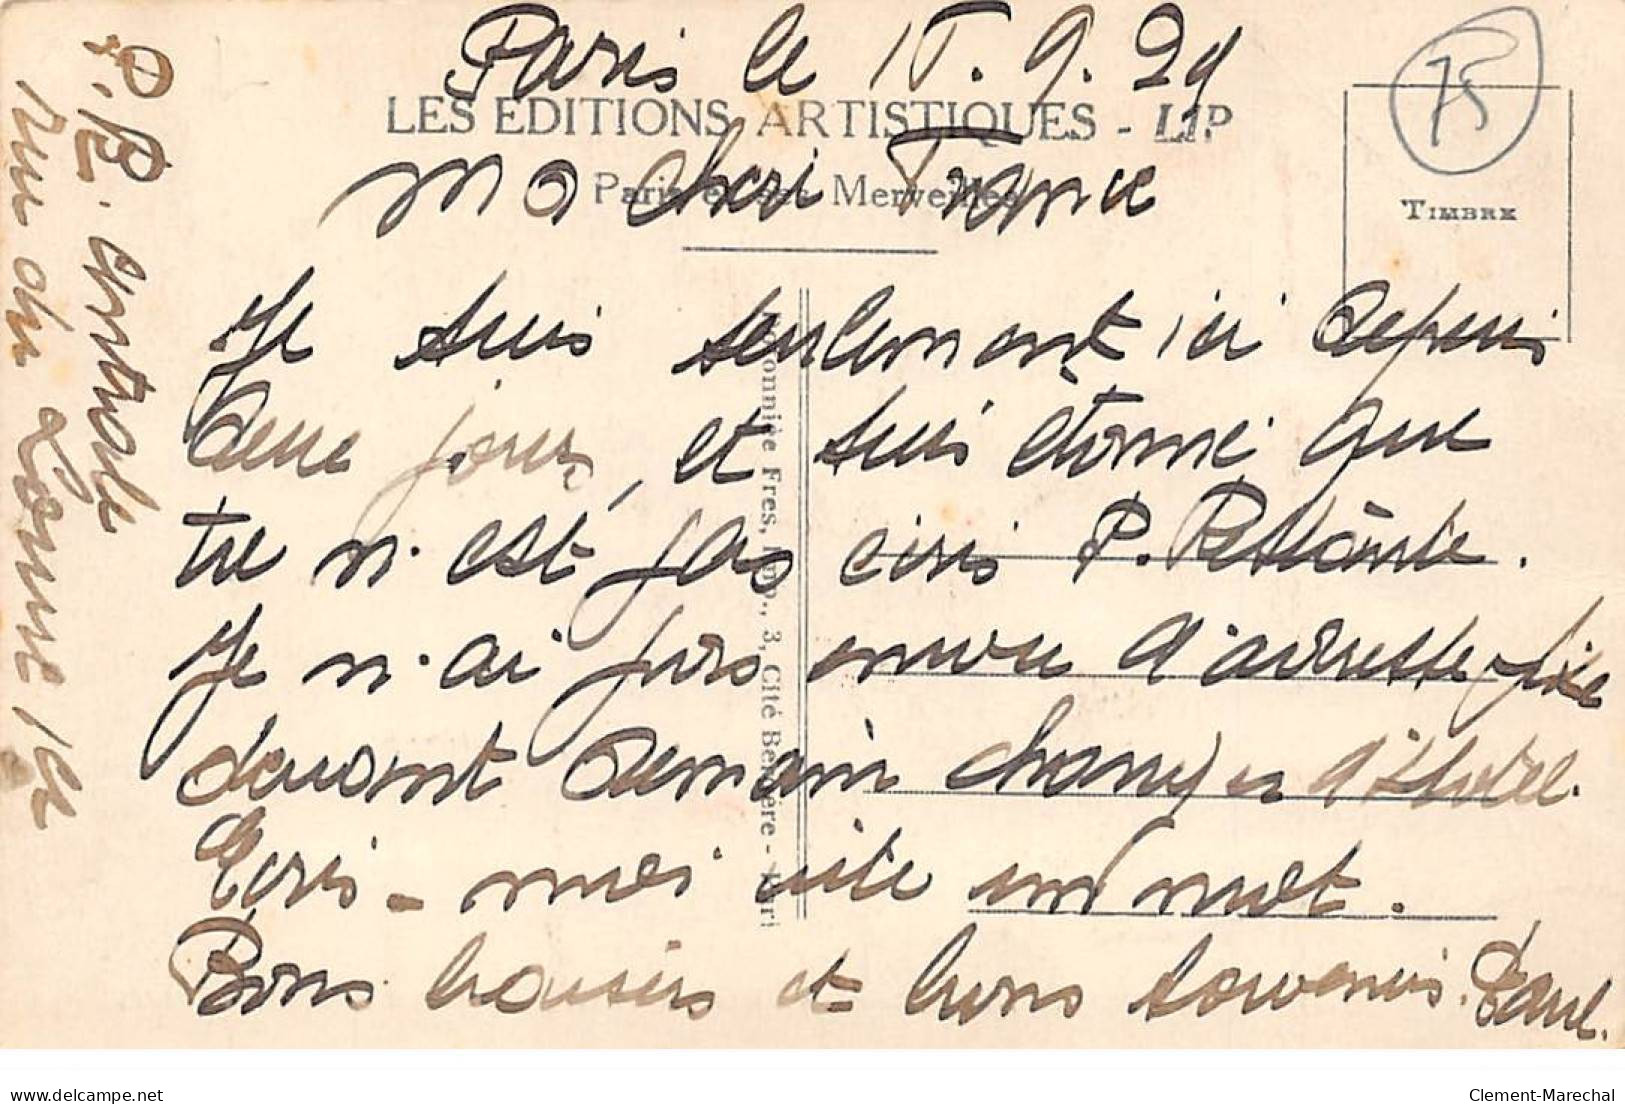 Paris le 15.9.29
LES EDITIONS ARTISTIQUES - LIP
Paris et ses Merveilles
Ma cheri France
75
TIMBRE
Je suis seulement ici depuis
deux jours, et suis étonné que
tu n'est pas écris P. Restante.
Je n'ai pas encore d'adresse fixe
devant demain changer d'Hotel.
Ecris-moi vite un mot.
Bons baisers et bons souvenirs. Paul.
P.R. centrale
rue du Louvre
Fres, Imp., 3, Cité Bergère - Pari
delcampe.net
Clement-Marechal